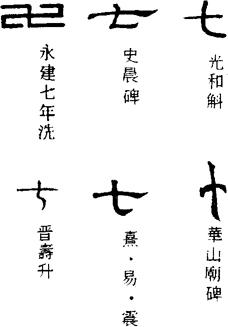 永建七年洗
七
史晨碑
七
光和斛
七
晋壽升
七
熹·易·震
華山廟碑